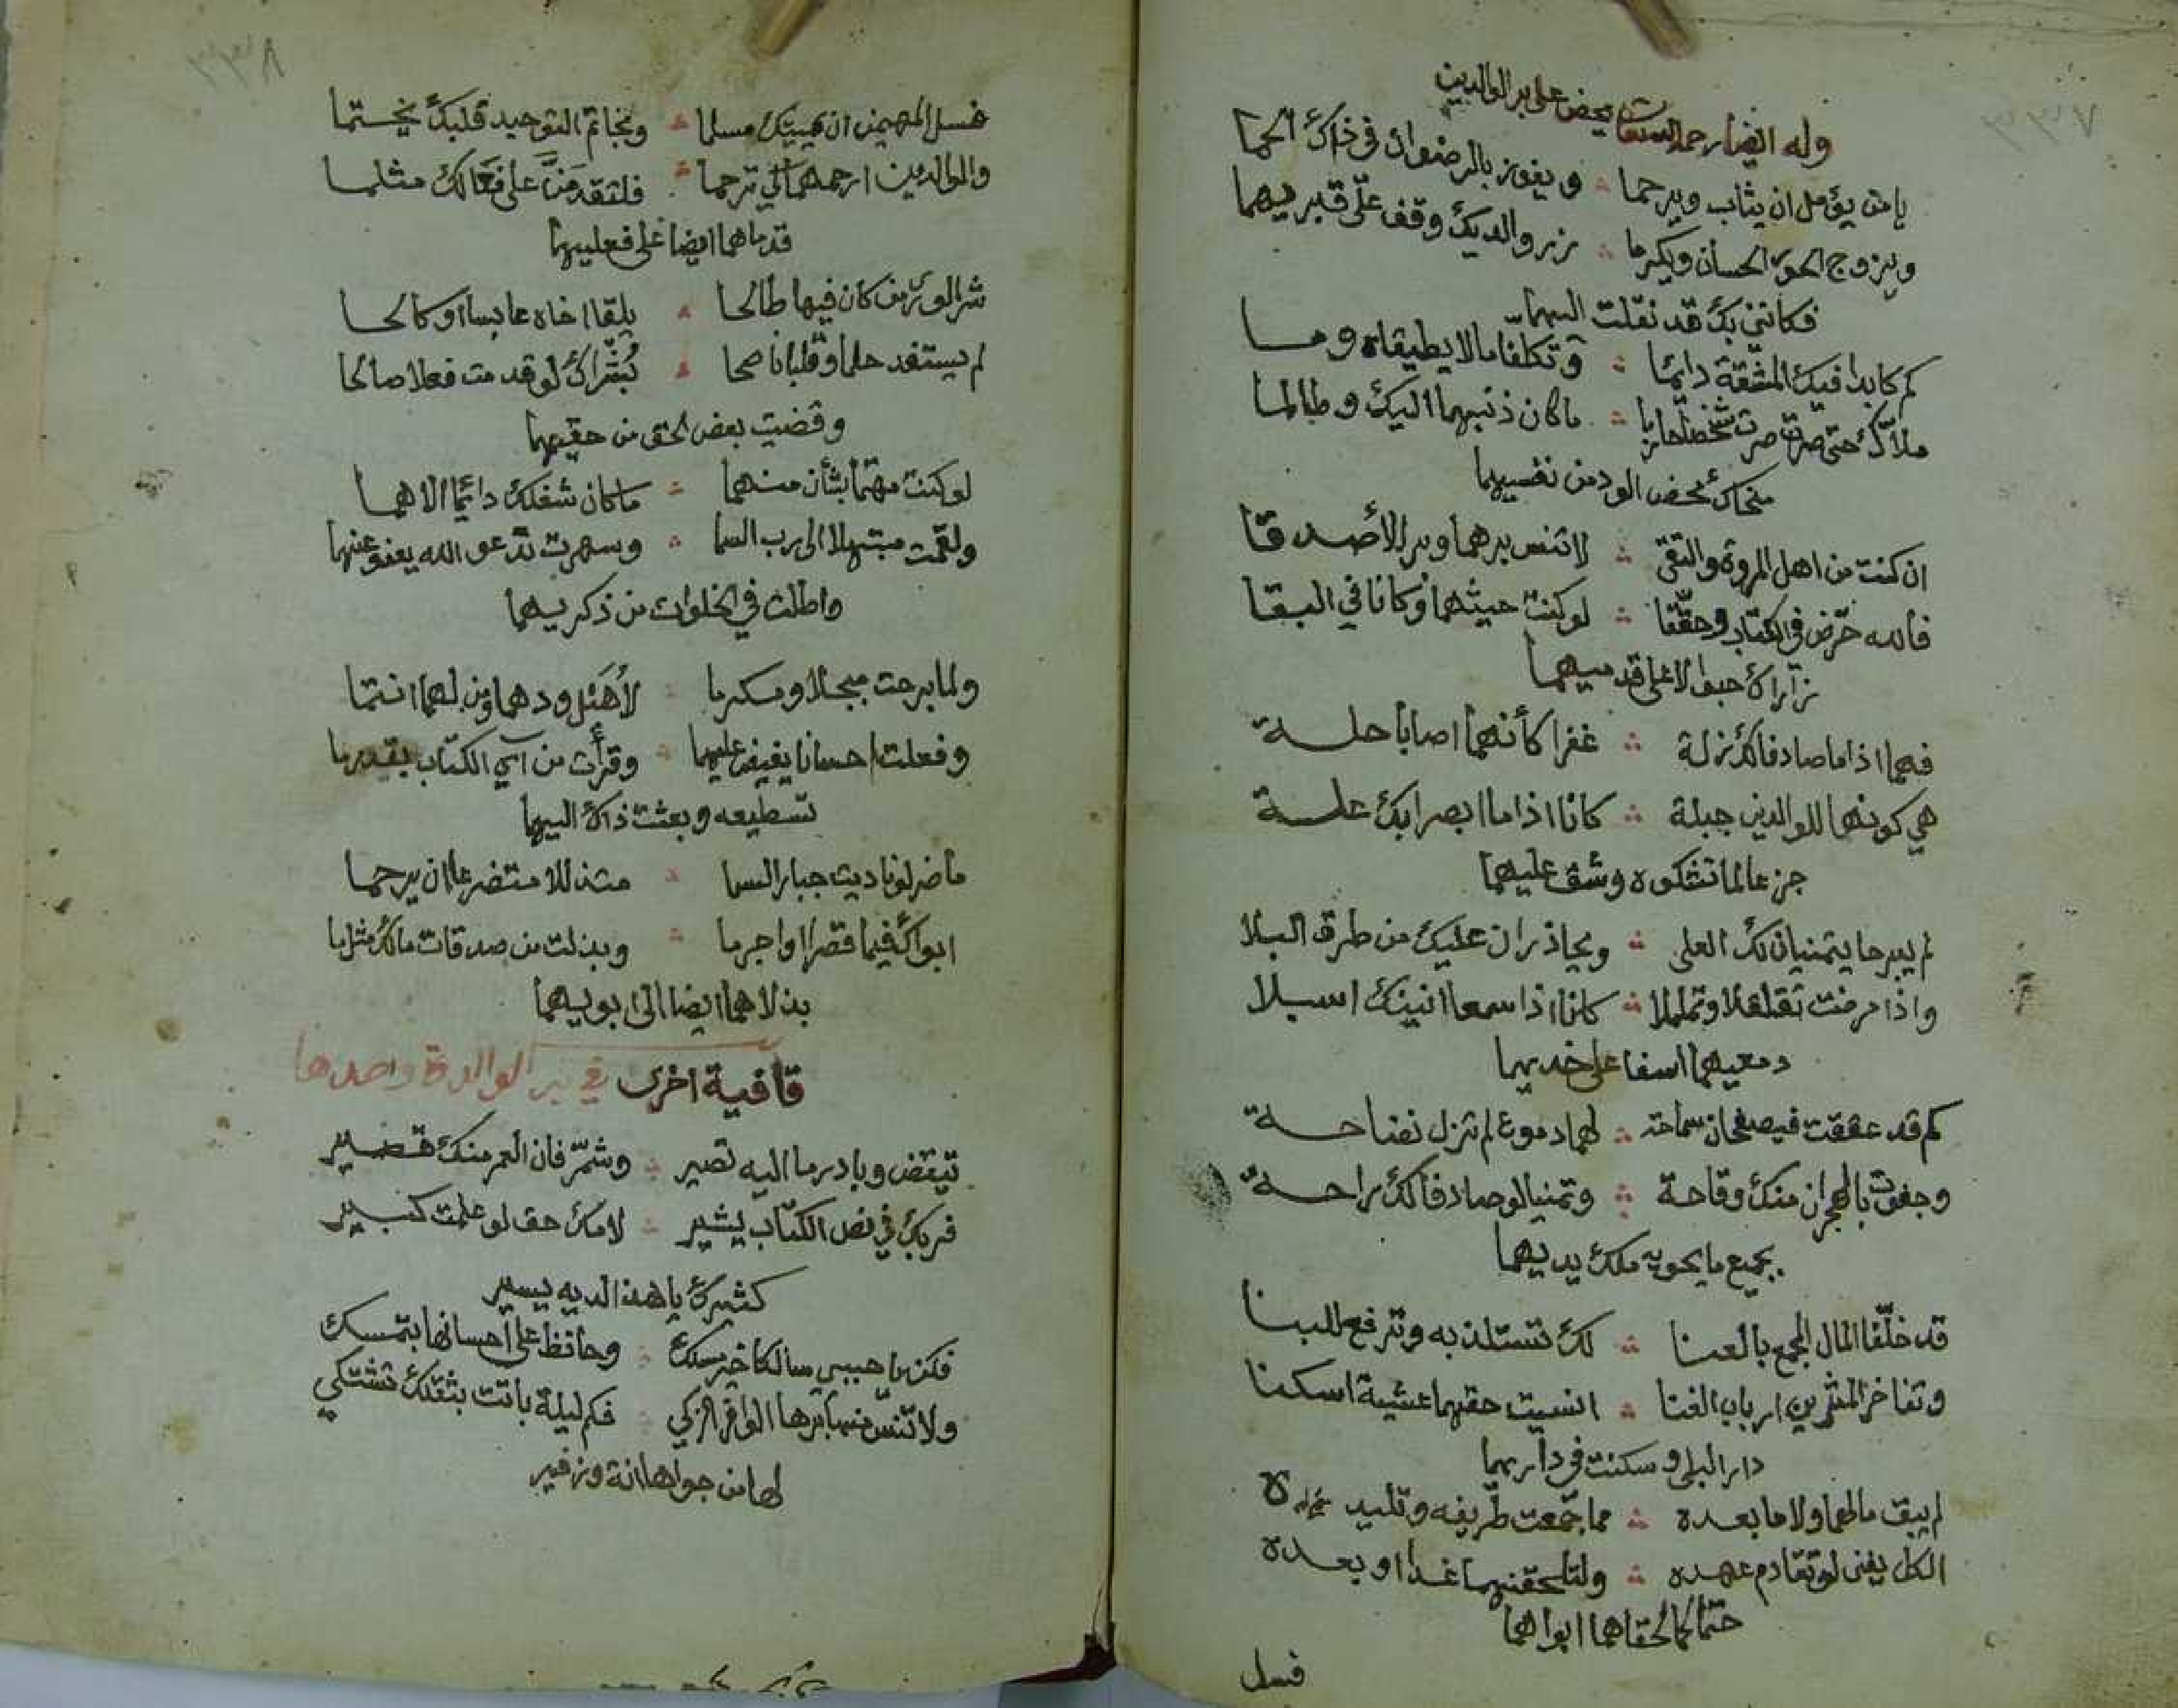 ٣٣٧
وله ايضا رحمه الله تعالى يحض على بر الوالدين
يا من يؤمل ان يثاب ويرحما ويفوز بالرضوان في ذاك الحما
ويزوج الحور الحسان ويكرما زر والديك وقف على قبريهما
فكانني بك قد نقلت اليهما
كم كابدا فيك المشقة دائما وتكلفا ما لا يطيقاه وما
ملاك حتى صرت شخصا حازما ما كان ذنبهما اليك وطالما
منحاك محض الود من نفسيهما
ان كنت من اهل المروة والتقى لا تنس برهما وبر الأصدقا
فالله حرض في الكتاب وحققا لو كنت حيثهما وكانا في البقا
زاراك حبوا لا على قدميهما
فهما اذا ما صادفا لك زلة غفرا كأنهما اصابا حلة
هي كونها للوالدين جبلة كانا اذا ما ابصرا بك علة
جزعا لما تشكوه وشق عليهما
لم يبرحا يتمنيان لك العلى ويحاذران عليك من طرق البلا
واذا مرضت تقلقلا وتململا كانا اذا سمعا انينك اسبلا
دمعيهما اسفا على خديهما
كم قد عققت فيصفحان سماحة لهما دموع لم تزل نضاحة
وجفوت بالهجران منك وقاحة وتمنيا لو صادفا لك راحة
بجميع ما يحويه ملك يديهما
قد خلفا المال المجمع بالعنا لك تستلذ به وترفع للبنا
وتفاخر المثرين ارباب الغنا انسيت حقهما عشية اسكنا
دار البلى وسكنت في داريهما
لم يبق مالهما ولا ما بعده مما جمعت طريفه وتليده
الكل يفنى لو تقادم عهده ولتلحقنهما غدا او بعده
حتما كما لحقاهما ابواهما
فسل
٣٣٨
فسل المهيمن ان يميتك مسلما وبخاتم التوحيد قلبك يختما
والوالدين ارحمهما كي ترحما فلتقدمن على فعالك مثلما
قدماهما ايضا على فعليهما
شر الورى من كان فيها طالحا يلقا اخاه عابسا او كالحا
لم يستفد حلما وقلبا ناصحا بشراك لو قدمت فعلا صالحا
وقضيت بعض الحق من حقيهما
لو كنت مهتما بشأن منهما ما كان شغلك دائما الا هما
ولقمت مبتهلا الى رب السما وسهرت تدعو الله يعفو عنهما
واطلت في الخلوات من ذكريهما
ولما برحت مبجلا ومكرما لأهيل ودهما ومن لهما انتما
وفعلت احسانا يفيض عليهما وقرأت من آي الكتاب بقدر ما
تسطيعه وبعثت ذاك اليهما
ما ضر لو ناديت جبار السما متذللا متضرعا ان يرحما
ابواك فيما قصرا او اجرما وبذلت من صدقات مالك مثل ما
بذلا هما ايضا الى ابويهما
قافية اخرى في بر الوالدة واحدها
تيقض وبادر ما اليه تصير وشمر فان العمر منك قصير
فربك في نص الكتاب يشير لامك حق لو علمت كبير
كثيرك يا هذا لديه يسير
فكن يا حبيبي سالكا خير مسلك وحافظ على احسانها بتمسك
ولا تنس منها برها الوافر الزكي فكم ليلة باتت بثقلك تشتكي
لها من جواها انة وزفير